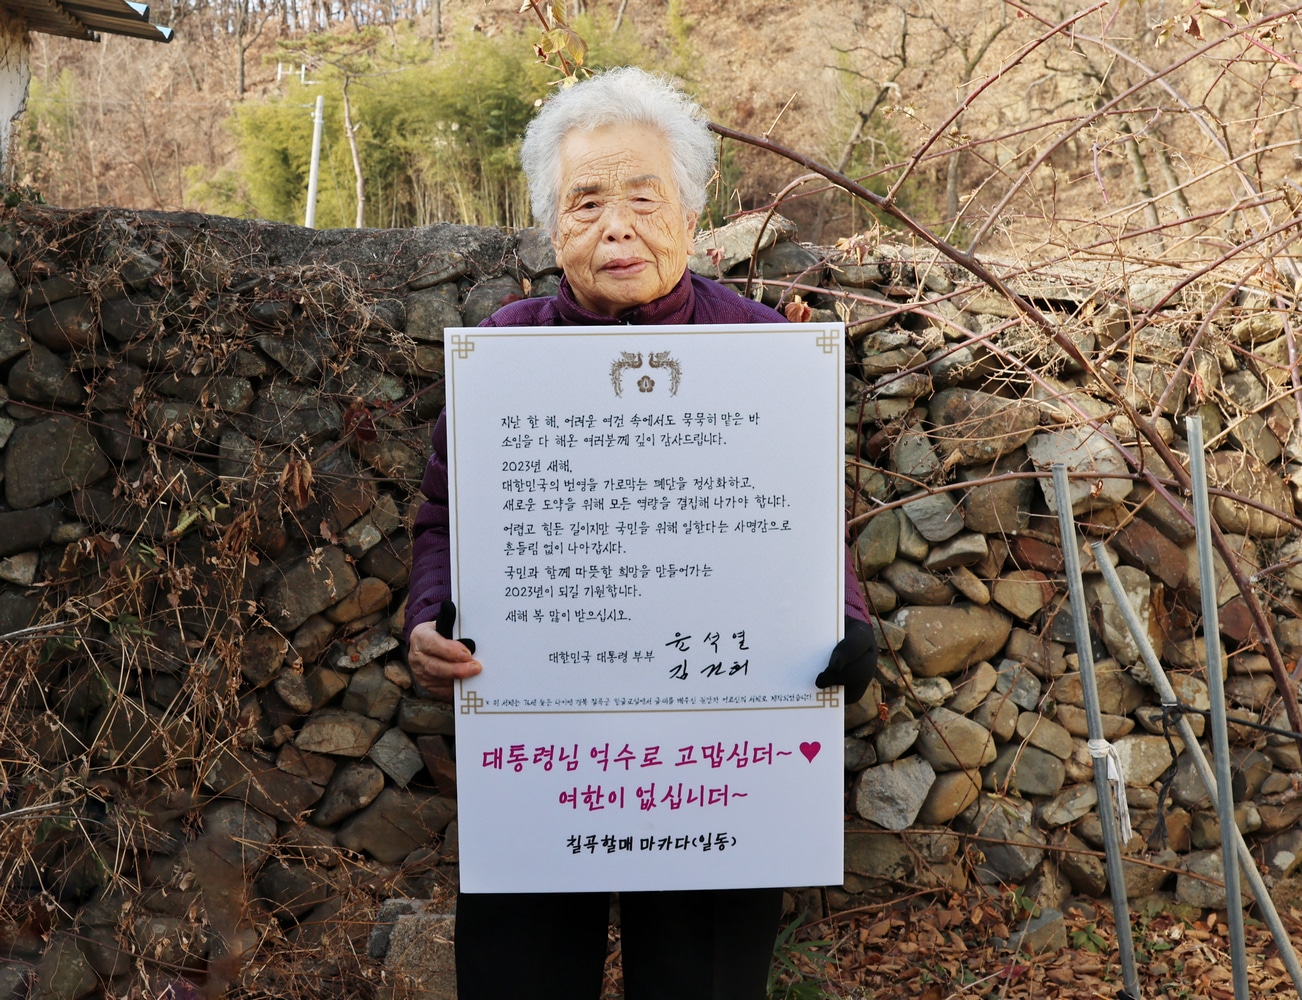 지난 한 해, 어려운 여건 속에서도 묵묵히 맡은 바
소임을 다 해온 여러분께 깊이 감사드립니다.
2023년 새해,
대한민국의 번영을 가로막는 폐단을 정상화하고,
새로운 도약을 위해 모든 역량을 결집해 나가야 합니다.
어렵고 힘든 길이지만 국민을 위해 일한다는 사명감으로
흔들림 없이 나아갑시다.
국민과 함께 따뜻한 희망을 만들어가는
2023년이 되길 기원합니다.
새해 복 많이 받으십시오.
대한민국 대통령 부부 윤석열
김건희
* 위 서체는 76세 늦은 나이에 경북 칠곡군 한글교실에서 글씨를 배우신 권안자 어르신의 서체로 제작되었습니다
대통령님 억수로 고맙심더~♥
여한이 없심니더~
칠곡할매 마카다(일동)